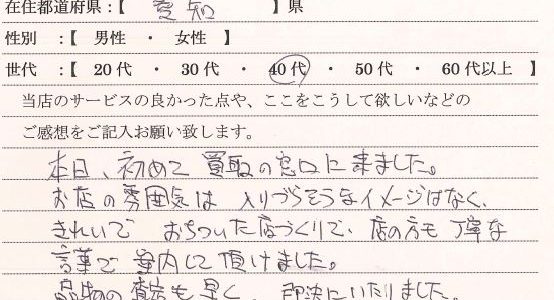 在住都道府県：【 愛知 】県
性別 ：【 男性 ・ 女性 】
世代 ：【 20代 ・ 30代 ・ 40代 ・ 50代 ・ 60代以上 】
当店のサービスの良かった点や、ここをこうして欲しいなどの
ご感想をご記入お願い致します。
本日、初めて買取の窓口に来ました。
お店の雰囲気は入りづらそうなイメージはなく、
きれいでおちついた店づくりで、店の方も丁寧な
言葉で案内して頂けました。
品物の査定も早く、即決にいたりました。